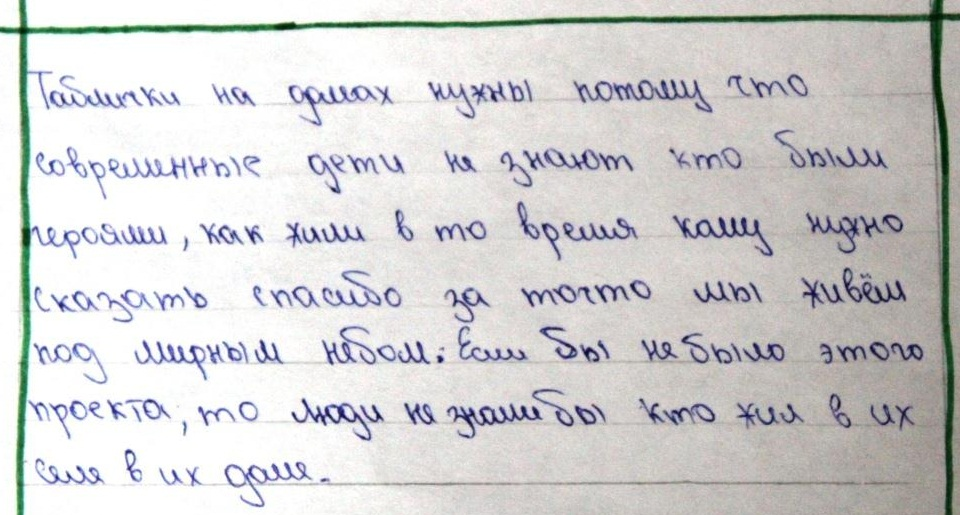 Таблички на домах нужны потому что
современные дети не знают кто были
героями, как жили в то время кому нужно
сказать спасибо за точто мы живём
под мирным небом. Если бы не было этого
проекта, то люди не зналибы кто жил в их
селе в их доме.